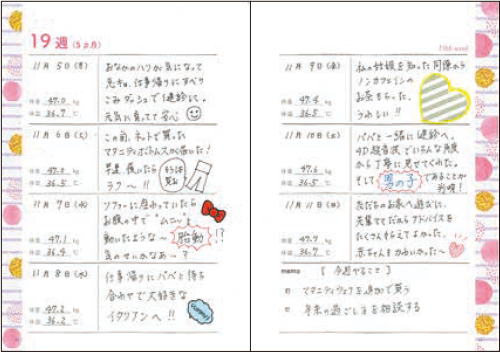 19週(5ヵ月)
11月5日(月)
おなかのハリが気になって
先生に、仕事帰りにすべり
こみダッシュで健診に。
元気に育ってて安心
体重 47.0 kg
体温 36.7 ℃
11月6日(火)
この前、ネットで買った
マタニティボトムスが届いた!
早速、履いたら
ラク〜!!
体重 47.0 kg
体温 36.5 ℃
11月7日(水)
ソファーに座っていたら
お腹の中で"ムニッ"と
動いたような〜 胎動 !?
気のせいかなぁ〜?
体重 47.1 kg
体温 36.4 ℃
11月8日(木)
仕事帰りにパパと待ち
合わせで大好きな
イタリアンへ!!
体重 47.2 kg
体温 36.2 ℃
19th week
11月9日(金)
私の妊娠を知った同僚から
ノンカフェインの
お茶もらった。
うれしい!!
体重 47.4 kg
体温 36.5 ℃
11月10日(土)
パパと一緒に健診へ。
4D超音波でいろんな角度
から丁寧に見せてくれた。
そして 男の子 であることが
判明!
体重 47.6 kg
体温 36.5 ℃
11月11日(日)
友だちのお家へ遊びに。
先輩ママだからアドバイスを
たくさんもらえてよかった。
赤ちゃんもかわいかった〜
体重 47.7 kg
体温 36.7 ℃
memo 【今週やること】
マタニティウェアを追加で買う
年末の過ごし方を相談する